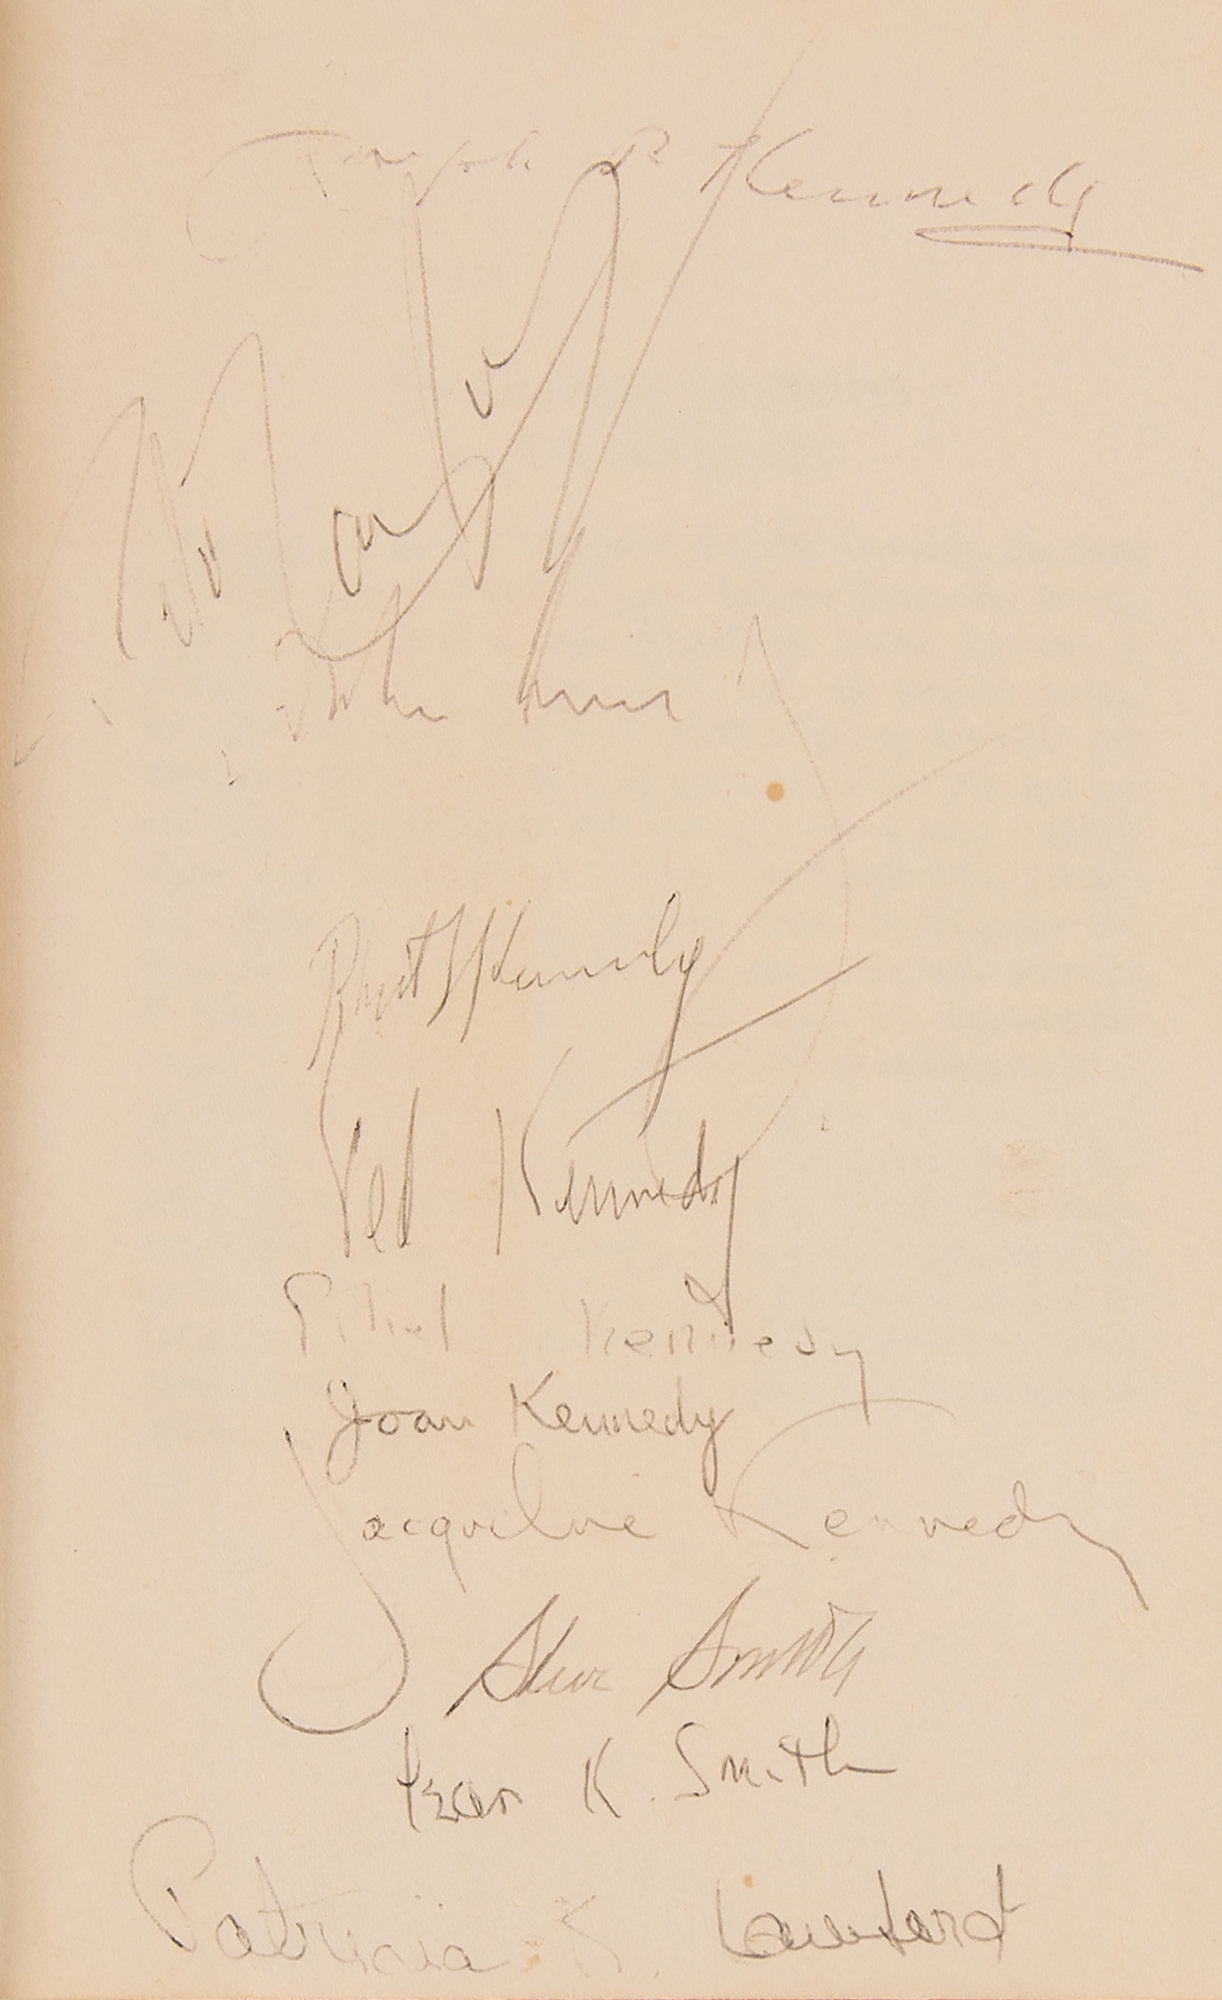 Joseph P Kennedy
John Kennedy
Robert Kennedy
Ted Kennedy
Ethel Kennedy
Joan Kennedy
Jacqueline Kennedy
Steve Smith
Jean K. Smith
Patricia K. Lawford